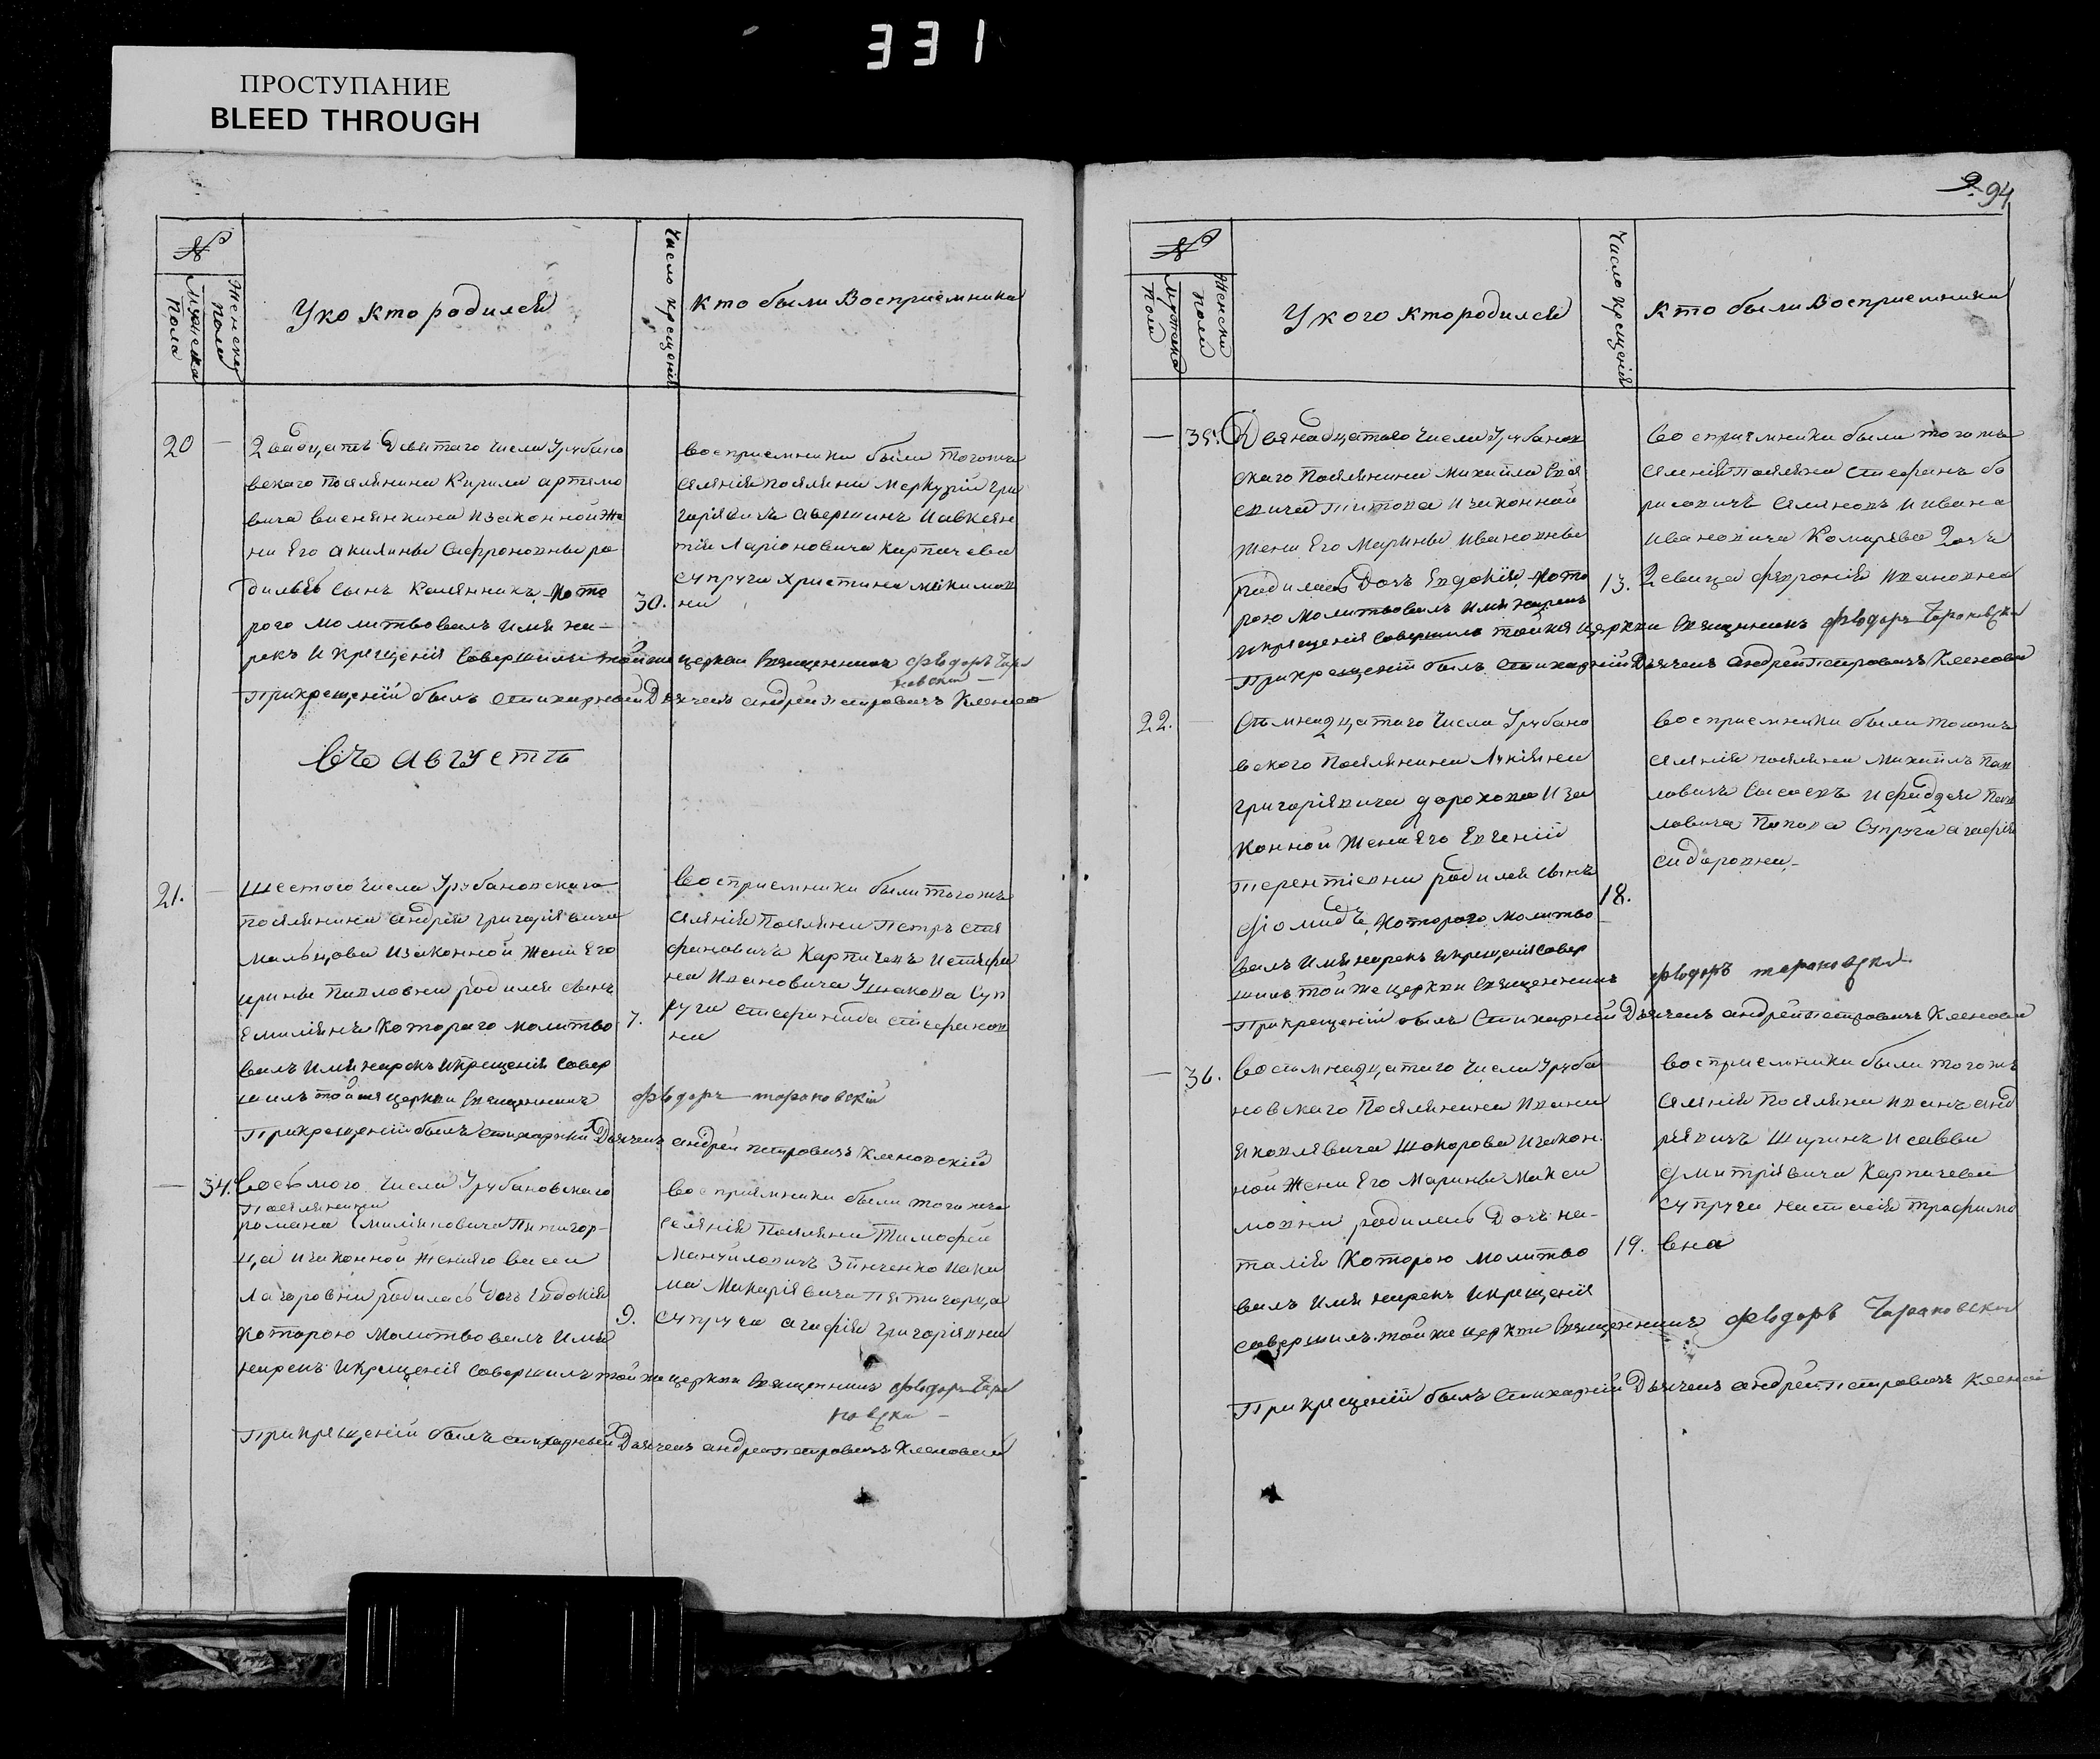 331
ПРОСТУПАНИЕ
BLEED THROUGH
94
№
Женска
пола
Мужеска
пола
Уко кто родился
Число крещения
кто были восприемники
20 —
Двадцать девятаго числа Урубано
вскаго поселянина Кирила артемо
вича изаконной же
ни Его акилины Сафроновны ро
дился сынъ Каленникъ, кото
рого молитвовалъ имя на—
рекъ и крещения совершилъ той же церкви священникъ Ѳедоръ Тара
новский
При крещении былъ стихарный Дьячекъ андрей петровичъ Кленовс
30.
восприемники были тогожъ
селения поселяни Меркурий Гри
горьевичъ авершинъ и авксен
тия Ларионовича Карпачева
супруга христина
на
въ августъ
21. —
Шестого числа Урубановскаго
поселянина андрея григориевича
Мальцова изаконной жены Его
ирины Павловны родился сынъ
Емилиянъ которого молитво
валъ имя нарекъ и крещения совер
шилъ той же церкви священникъ Ѳедоръ тарановский
При крещении былъ стихарный Дьячекъ андрей петровичъ Кленовский
7.
восприемники были тогожъ
селения поселяни Петръ сте
фановичъ Карпачевъ и стефа
на Ивановича Ушакова суп
руга стефанида стефанов
на
— 34.
Восьмого числа Урубановскаго
поселянина
романа Емилияновича Пятигор—
ца изаконной жены его васси
Лазаровны родилась дочь Евдокия
которою молитвовалъ имя
нарекъ и крещения совершилъ той же церкви священникъ Ѳедоръ Тара
новски —
При крещении былъ стихарный Дьячекъ андрей петровичъ Кленовский
9.
восприемники были тогожъ
селения поселяни Тимофей
Мануиловичъ Зинченко и аки
ма Макариевича Пятигорца
супруга агафия григориевна
№
Женска
пола
Мужеска
пола
У кого кто родился
Число крещения
Кто были восприемники
— 35.
Двенадцатого числа Урубанов
скаго поселянина Михайла
евича Титова изаконной
жены Его Марины Ивановны
родилась Дочь Евдокия, кото
рою молитвовалъ имя нарекъ
и крещения совершилъ той же церкви священникъ Ѳедоръ Тарановски
При крещении былъ стихарный Дьячекъ андрей петровичъ Кленовски
13.
восприемники были тогожъ
селения поселяни стефанъ бо
рисовичъ Семеновъ и ивана
ивановича Комарева дочь
девица феврония Ивановна
22. —
Семнадцатого числа Урубано
вскаго поселянина Лукияна
григориевича дорохова иза
конной жены Его Евгении
Терентиевны родился сынъ
диомидъ, которого молитво
валъ имя нарекъ и крещения совер
шилъ той же церкви священникъ Ѳедоръ тарановски
При крещении былъ стихарный Дьячекъ андрей петровичъ Кленовски
18.
восприемники были тогожъ
селения поселяни Михайлъ Пав
ловичъ Сысоевъ и фаддея Пав
ловича Попова супруга агафия
сидоровна—
— 36.
Восьмнадцатаго числа Уруба
новскаго поселянина Ивана
Яковлевича Шокорова изакон
ной жены Его Марины Макси
мовны родилась Дочь на—
талия которою молитво
валъ имя нарекъ и крещения
совершилъ той же церкви священникъ Ѳедоръ Тарановски
При крещении былъ стихарный Дьячекъ андрей петровичъ Кленов
19.
восприемники были тогожъ
селения поселяни иванъ анд
реевичъ Ширинъ и саввы
дмитриевича Карпачева
супруга настасия трофимо
вна